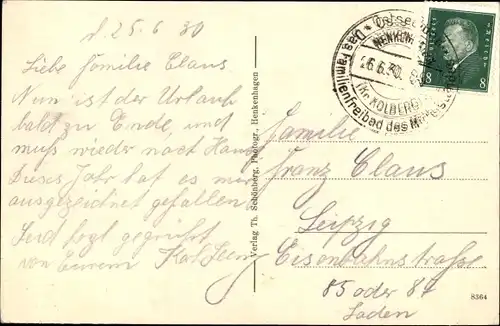 d. 25.6.30
Liebe Familie Claus
Nun ist der Urlaub
bald zu Ende, und
muß wieder nach Haus
Dieses Jahr hat es mir
ausgezeichnet gefallen
Seid herzl. gegrüßt
von Eurem Karl
Verlag Th. Schönberg, Photogr., Henkenhagen
Ostsee
HENKENHAGEN
26.6.30.
(Kr. KOLBERG)
Das Familienfreibad des
8 8
Familie
Franz Claus
Leipzig
Eisenbahnstraße
85 oder 87
Laden
8364